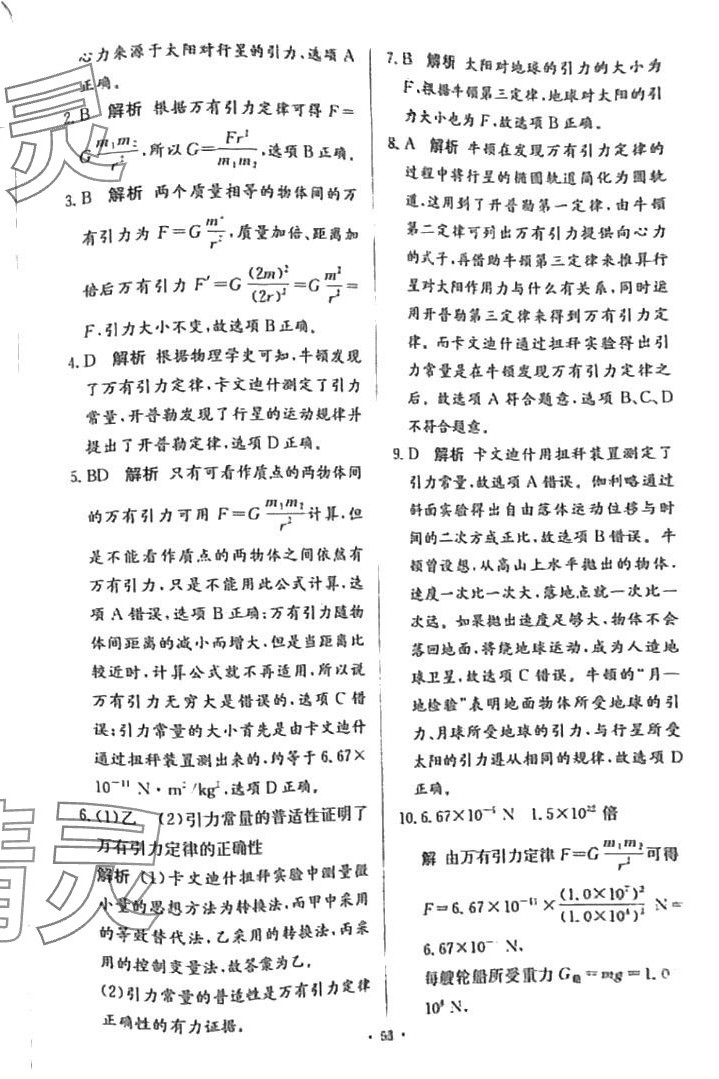 心力来源于太阳对行星的引力,选项 A
正确。
2. B 解析 根据万有引力定律可得 F=
G m₁m₂/r²,所以 G=Fr²/m₁m₂,选项 B 正确。
3. B 解析 两个质量相等的物体间的万
有引力为 F=G m²/r²,质量加倍、距离加
倍后万有引力 F′=G (2m)²/(2r)²=G m²/r²=
F,引力大小不变,故选项 B 正确。
4. D 解析 根据物理学史可知,牛顿发现
了万有引力定律,卡文迪什测定了引力
常量,开普勒发现了行星的运动规律并
提出了开普勒定律,选项 D 正确。
5. BD 解析 只有可看作质点的两物体间
的万有引力可用 F=G m₁m₂/r² 计算,但
是不能看作质点的两物体之间依然有
万有引力,只是不能用此公式计算,选
项 A 错误,选项 B 正确;万有引力随物
体间距离的减小而增大,但是当距离比
较近时,计算公式就不再适用,所以说
万有引力无穷大是错误的,选项 C 错
误;引力常量的大小首先是由卡文迪什
通过扭秤装置测出来的,约等于 6.67×
10⁻¹¹ N·m²/kg²,选项 D 正确。
6. (1)乙 (2)引力常量的普适性证明了
万有引力定律的正确性
解析 (1)卡文迪什扭秤实验中测量微
小量的思想方法为转换法,而甲中采用
的等效替代法,乙采用的转换法,丙采
用的控制变量法,故答案为乙。
(2)引力常量的普适性是万有引力定律
正确性的有力证据。
7. B 解析 太阳对地球的引力的大小为
F,根据牛顿第三定律,地球对太阳的引
力大小也为 F,故选项 B 正确。
8. A 解析 牛顿在发现万有引力定律的
过程中将行星的椭圆轨道简化为圆轨
道,这用到了开普勒第一定律,由牛顿
第二定律可列出万有引力提供向心力
的式子,再借助牛顿第三定律来推算行
星对太阳作用力与什么有关系,同时运
用开普勒第三定律来得到万有引力定
律。而卡文迪什通过扭秤实验得出引
力常量是在牛顿发现万有引力定律之
后。故选项 A 符合题意,选项 B、C、D
不符合题意。
9. D 解析 卡文迪什用扭秤装置测定了
引力常量,故选项 A 错误。伽利略通过
斜面实验得出自由落体运动位移与时
间的二次方成正比,故选项 B 错误。牛
顿曾设想,从高山上水平抛出的物体,
速度一次比一次大,落地点就一次比
一次远。如果抛出速度足够大,物体不会
落回地面,将绕地球运动,成为人造地
球卫星,故选项 C 错误。牛顿的“月—
地检验”表明地面物体所受地球的引
力、月球所受地球的引力,与行星所受
太阳的引力遵从相同的规律,故选项 D
正确。
10. 6.67×10⁻⁵ N 1.5×10²² 倍
解 由万有引力定律 F=G m₁m₂/r² 可得
F=6.67×10⁻¹¹×(1.0×10⁷)²/(1.0×10⁴)² N=
6.67×10⁻⁵ N,
每艘轮船所受重力 G船=mg=1.0
10⁸ N,
· 53 ·
精灵
灵